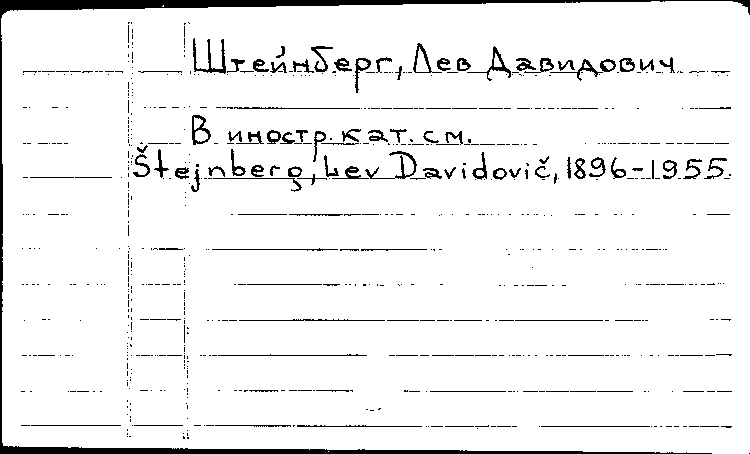 Штейнберг, Лев Давидович
В иностр. кат. см.
Štejnberg, Lev Davidovič, 1896-1955.